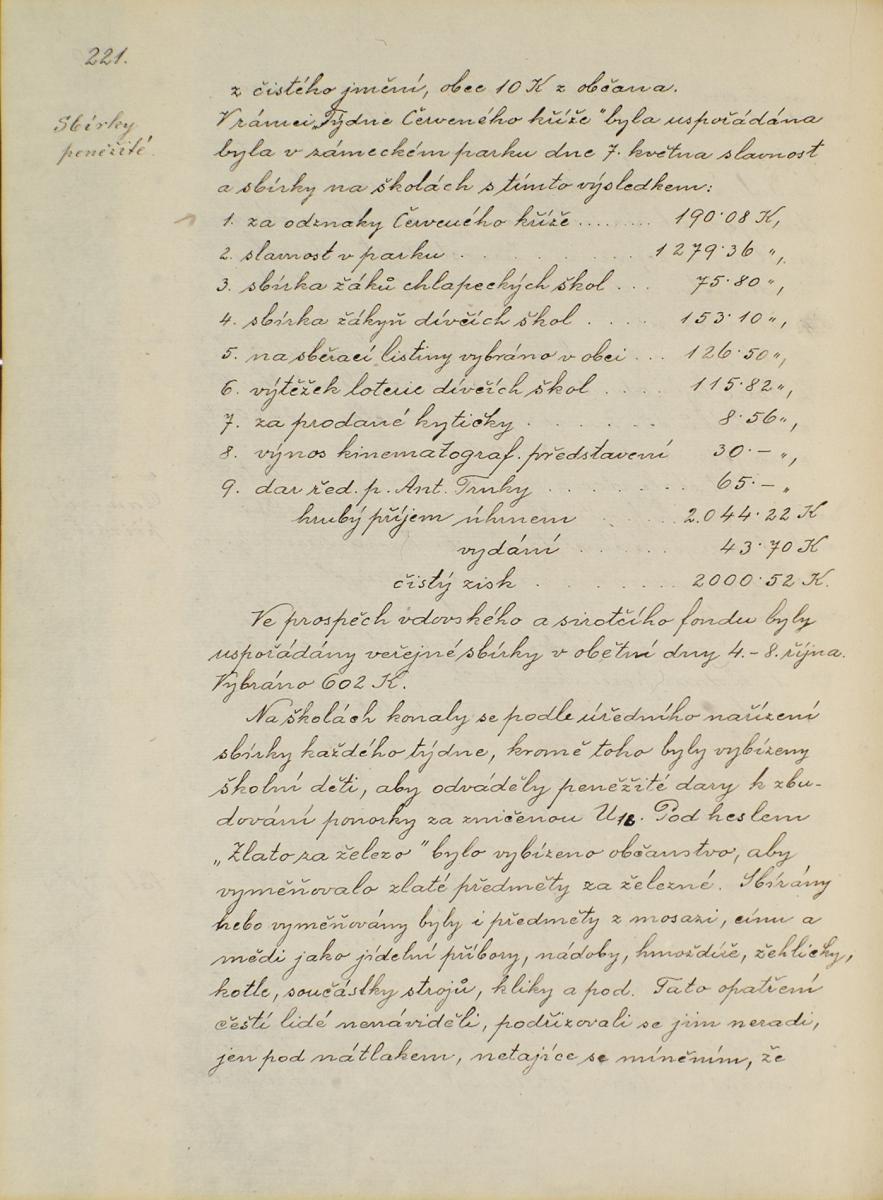 221.
z čistého jmění, obec 10 K z občana.
Sbírky
peněžité.
V rámci „Týdne Červeného kříže“ byla uspořádána
byla v zámeckém parku dne 7. května slavnost
a sbírky na školách s tímto výsledkem:
1. za odznaky Červeného kříže ....... 190·08 K,
2. slavnost v parku . . . . . . . 1279·36 „,
3. sbírka žáků chlapeckých škol . . . 75·80 „,
4. sbírka žákyň dívčích škol . . . . 153·10 „,
5. na sběrací listiny vybráno v obci . . . 126·50 „,
6. výtěžek loterie dívčích škol . . . . 115·82 „,
7. za prodané kytičky . . . . . . 8·56 „,
8. výnos kinematograf. představení 30·– „,
9. dar řed. p. Ant. Trnky . . . . . . 65·– „
hrubý příjem úhrnem . . . . 2.044·22 K
vydání . . . . . 43·70 K
čistý zisk . . . . . . 2000·52 K.
Ve prospěch vdovského a sirotčího fondu byly
uspořádány veřejné sbírky v obětní dny 4. – 8. října.
Vybráno 602 K.
Na školách konaly se podle úředního nařízení
sbírky každého týdne, kromě toho byly vybízeny
školní děti, aby odváděly peněžité dary k zbu-
dování ponorky za zničenou U12. Pod heslem
„Zlato za železo“ bylo vybízeno občanstvo, aby
vyměňovalo zlaté předměty za železné. Sbírány
nebo vyměňovány byly i předměty z mosazi, cínu a
mědi jako jídelní příbory, nádoby, hmoždíře, žehličky,
kotle, součástky strojů, kliky a pod. Tato opatření
čeští lidé nenáviděli, podřizovali se jim neradi,
jen pod nátlakem, netajíce se míněním, že